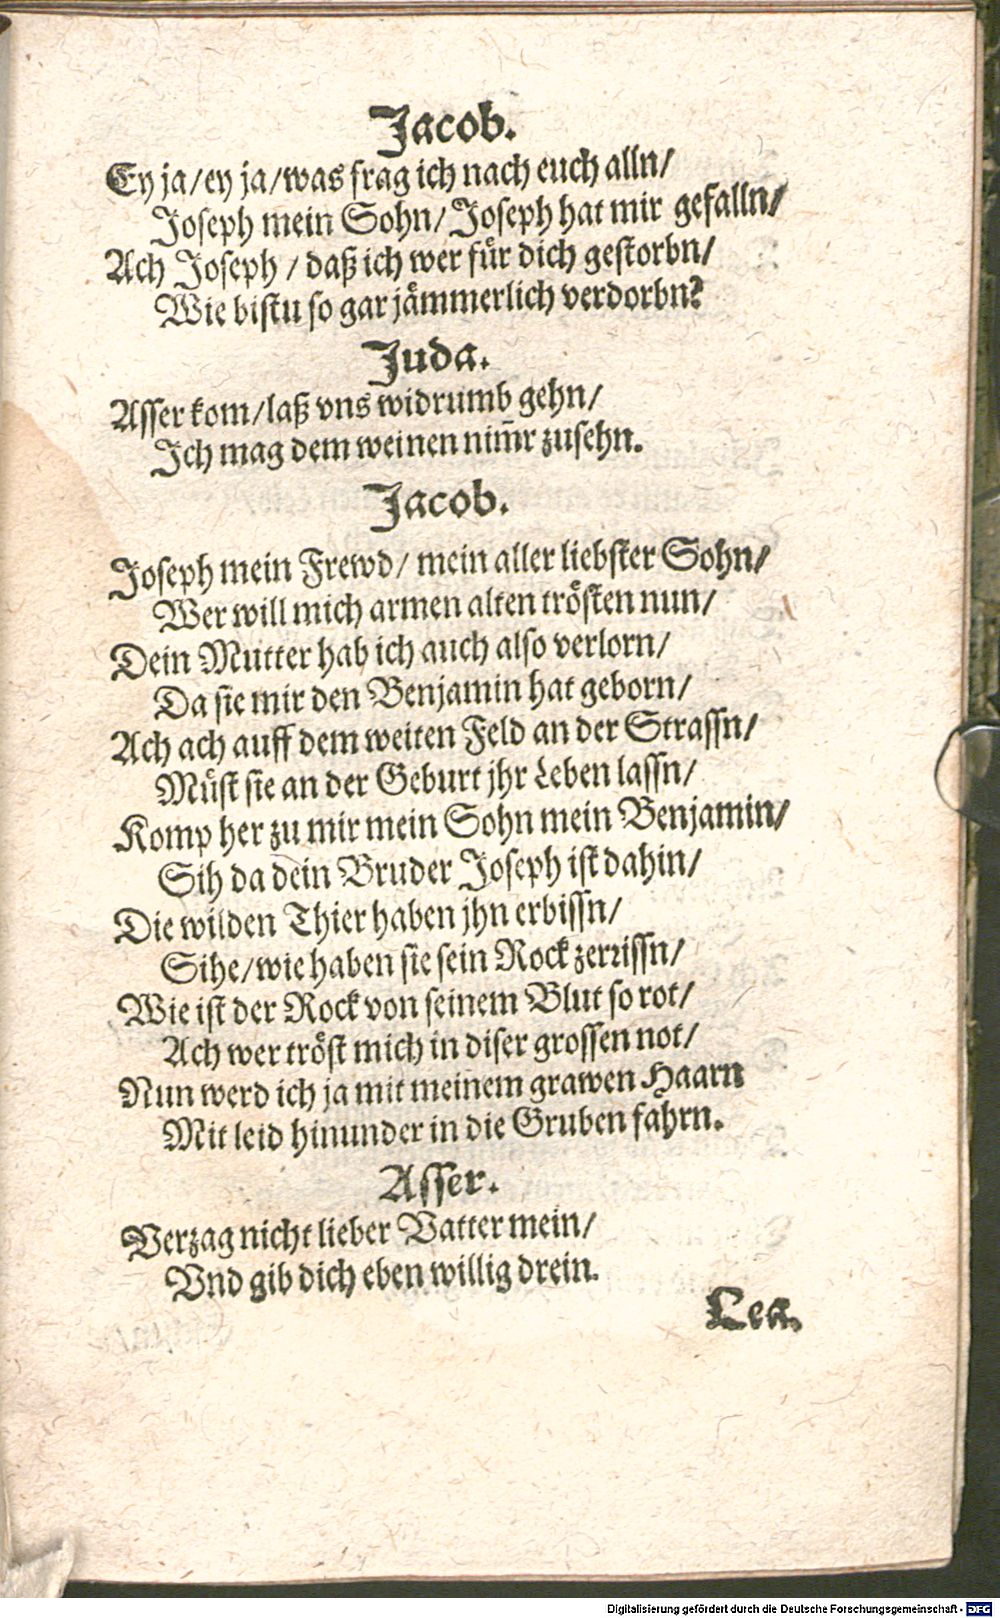 Jacob.
Ey ja/ey ja/was frag ich nach euch alln/
Joseph mein Sohn/Joseph hat mir gefalln/
Ach Joseph / daß ich wer fuͤr dich gestorbn/
Wie bistu so gar jaͤmmerlich verdorbn?
Juda.
Asser kom/laß vns widrumb gehn/
Ich mag dem weinen nim̄r zusehn.
Jacob.
Joseph mein Frewd/ mein aller liebster Sohn/
Wer will mich armen alten troͤsten nun/
Dein Mutter hab ich auch also verlorn/
Da sie mir den Benjamin hat geborn/
Ach ach auff dem weiten Feld an der Strassn/
Muͤst sie an der Geburt jhr Leben lassn/
Komp her zu mir mein Sohn mein Benjamin/
Sih da dein Bruder Joseph ist dahin/
Die wilden Thier haben jhn erbissn/
Sihe/wie haben sie sein Rock zerrissn/
Wie ist der Rock von seinem Blut so rot/
Ach wer troͤst mich in diser grossen not/
Nun werd ich ja mit meinem grawen Haarn
Mit leid hinunder in die Gruben fahrn.
Asser.
Verzag nicht lieber Vatter mein/
Vnd gib dich eben willig drein.
Lea.
Digitalisierung gefördert durch die Deutsche Forschungsgemeinschaft - DFG